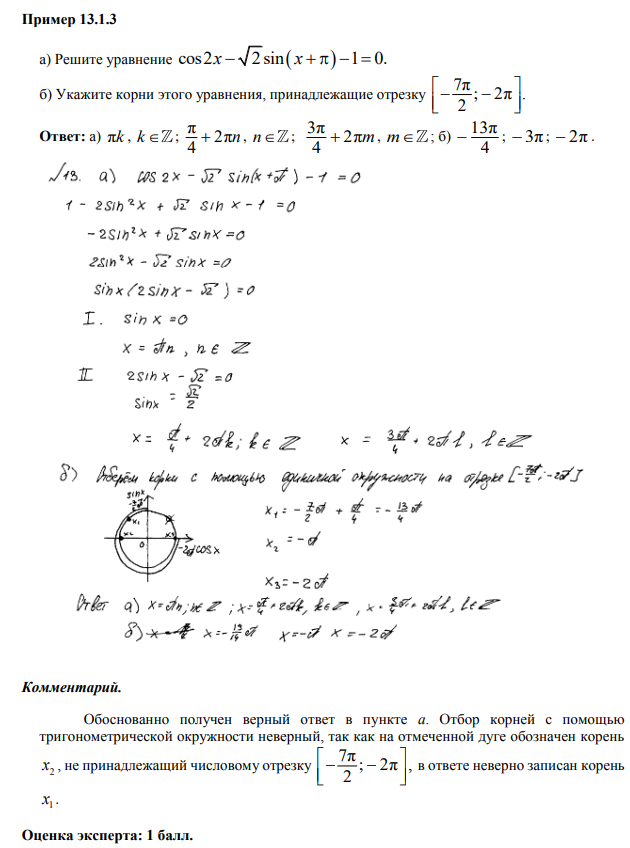 Пример 13.1.3
а) Решите уравнение cos2x − √2 sin(x + π) − 1 = 0.
б) Укажите корни этого уравнения, принадлежащие отрезку [−7π/2; −2π].
Ответ: а) πk, k ∈ ℤ; π/4 + 2πn, n ∈ ℤ; 3π/4 + 2πm, m ∈ ℤ; б) −13π/4; −3π; −2π.
№13. а) cos 2x − √2 sin(x + π) − 1 = 0
1 − 2sin²x + √2 sin x − 1 = 0
−2sin²x + √2 sinx = 0
2sin²x − √2 sinx = 0
sinx(2sinx − √2) = 0
I. sin x = 0
x = πn, n ∈ ℤ
II 2sinx − √2 = 0
sinx = √2/2
x = π/4 + 2πk; k ∈ ℤ x = 3π/4 + 2πl, l ∈ ℤ
б) Отберём корни с помощью единичной окружности на отрезке [−7π/2; −2π]
sinx
−7π/2
x₁
x₂ 0 x₃
−2π cosx
x₁ = −7/2π + π/4 = −13/4π
x₂ = −π
x₃ = −2π
Ответ а) x = πn; n ∈ ℤ; x = π/4 + 2πk, k ∈ ℤ, x = 3/4π + 2πl, l ∈ ℤ
б) x = −13/14π x = −π x = −2π
Комментарий.
Обоснованно получен верный ответ в пункте а. Отбор корней с помощью
тригонометрической окружности неверный, так как на отмеченной дуге обозначен корень
x₂, не принадлежащий числовому отрезку [−7π/2; −2π], в ответе неверно записан корень
x₁.
Оценка эксперта: 1 балл.